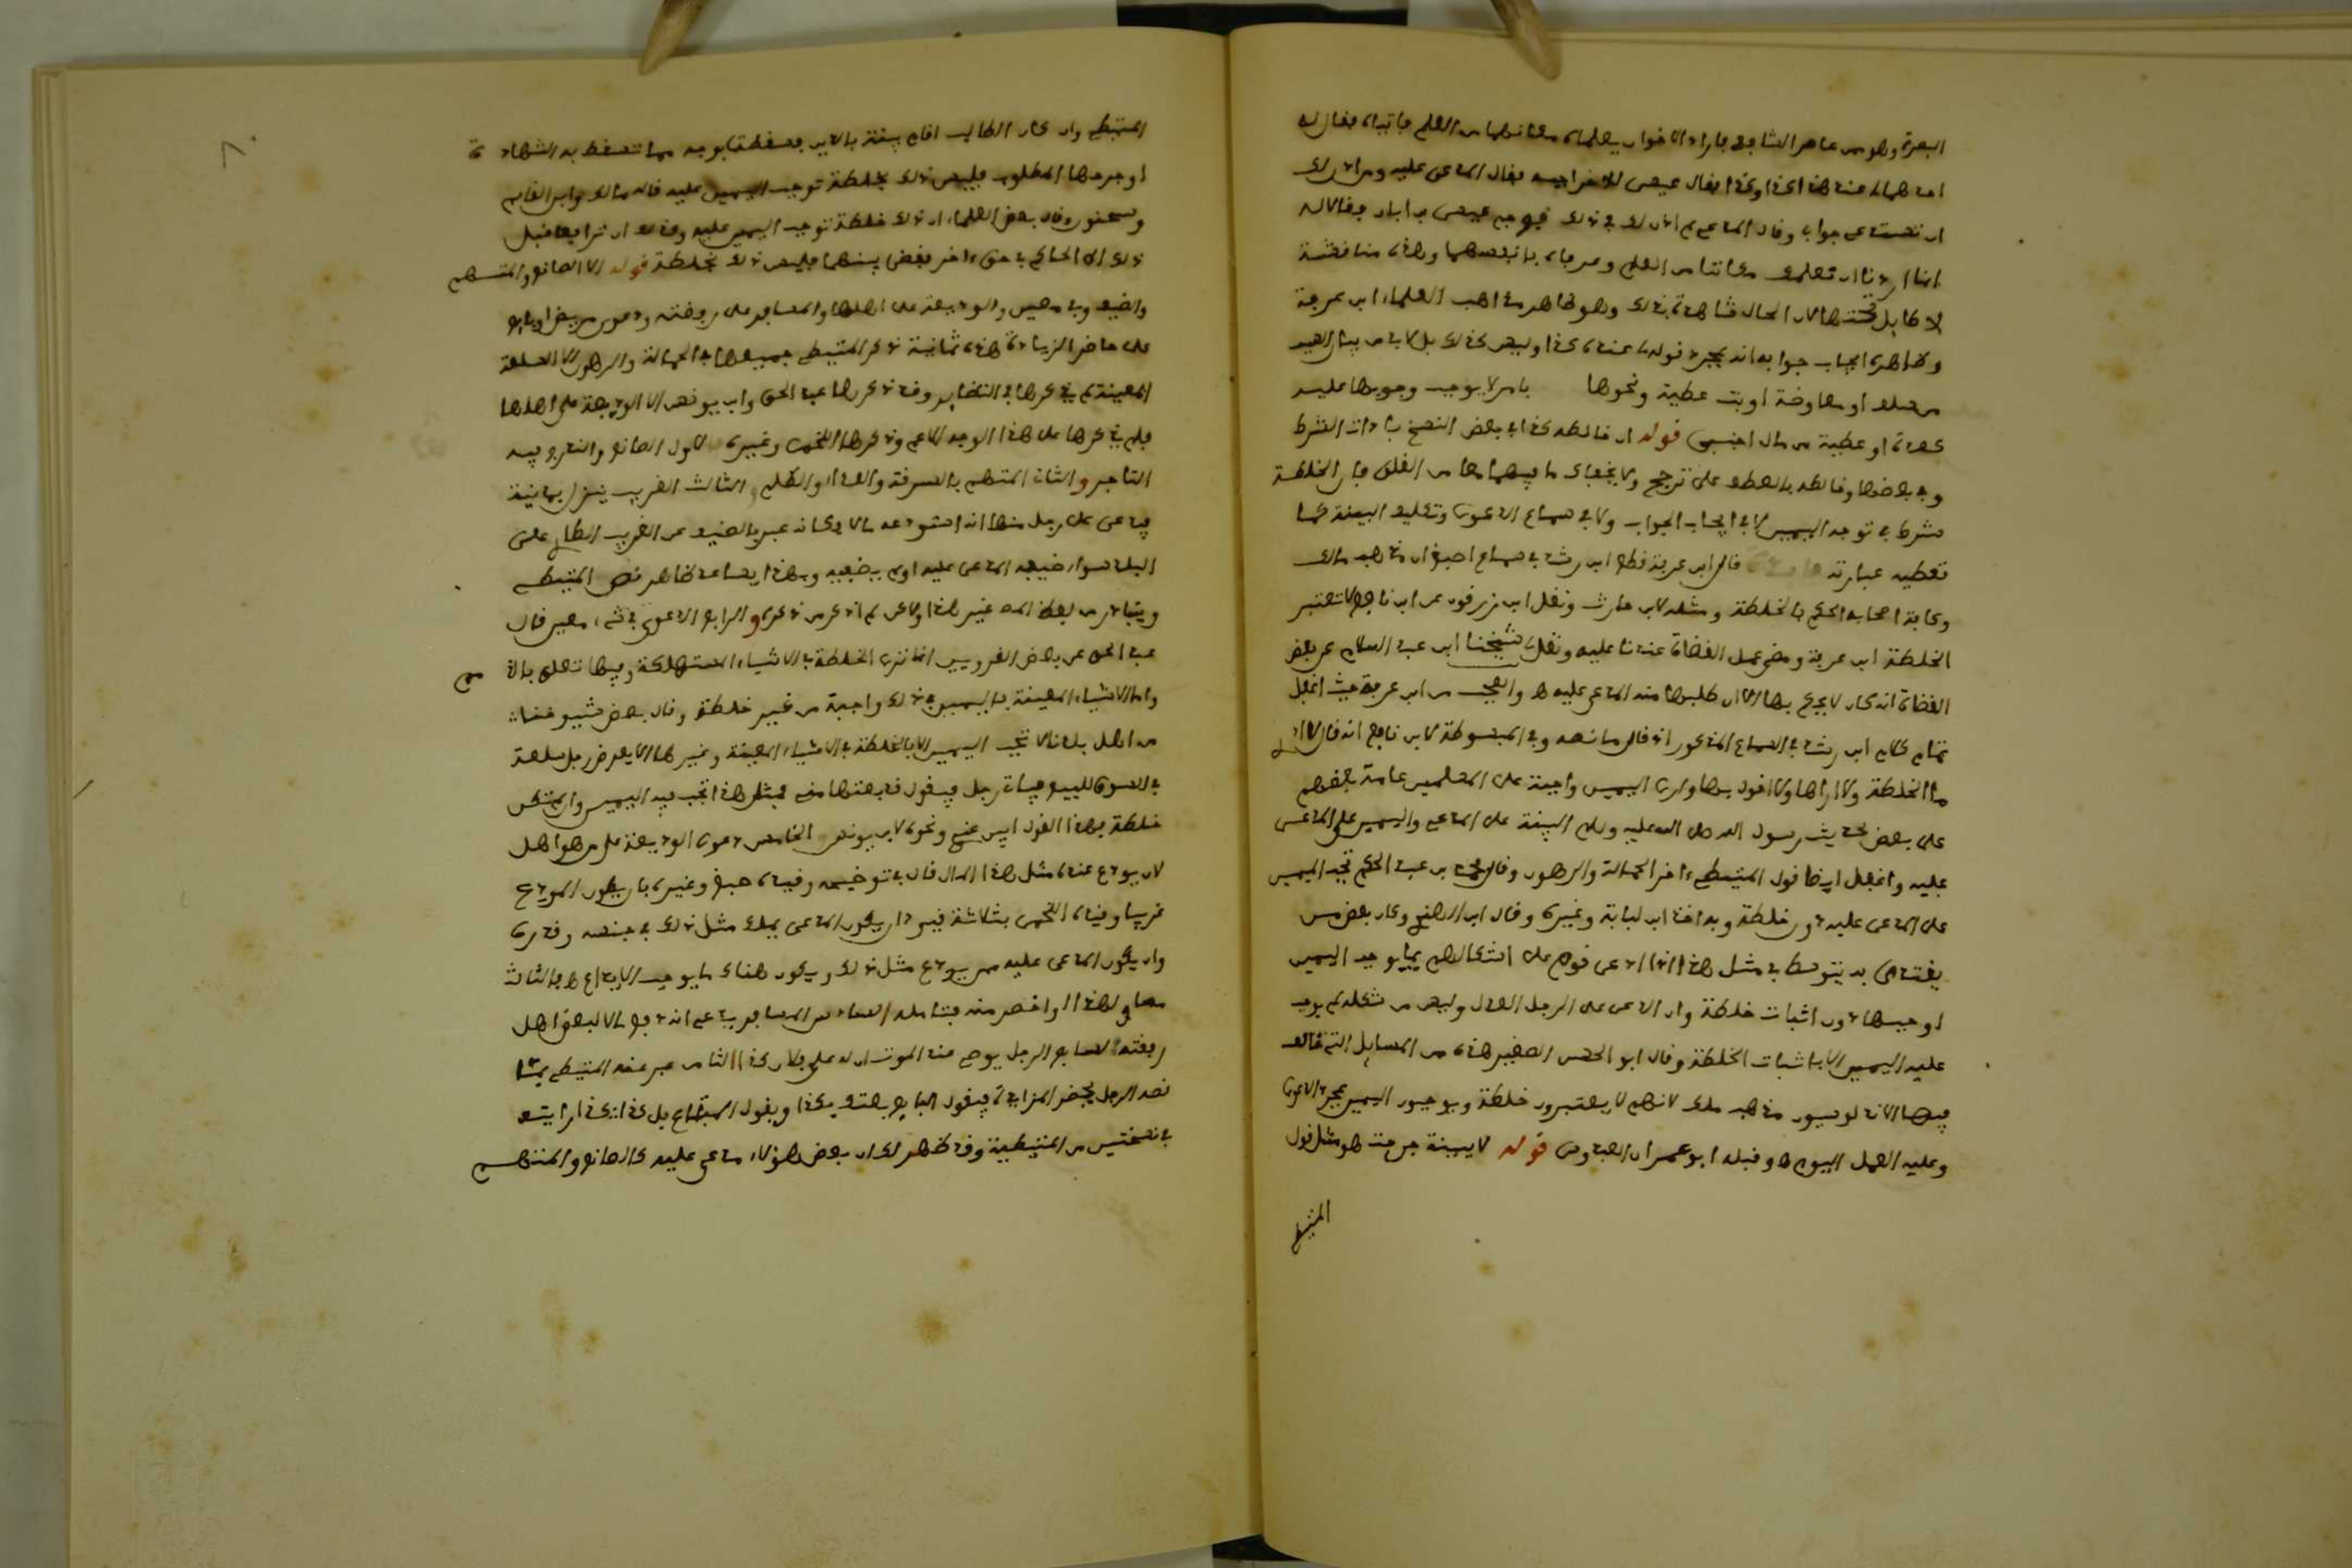 البصرة وهو من عاصر الشافعي فاراد الاخوان يعلماه مكانهما من العلم فاتياه فقال له
احدهما لي عند هذا كذا وكذا فقال عيسى للاخر اجبه فقال المدعى عليه ومن اذن لك
ان تستدعي جوابي وقال المدعي لم اذن لك في ذلك فوجم عيسى بن ابان فقالا له
انما اردنا ان نعلمك مكاننا من العلم وعرفاه بانفسهما وهذه مناقشة
لا طايل تحتها لان الحال شاهدة بذلك وهو ظاهر مذاهب العلماء ابن عرفة
وظاهره ايجاب جوابه انه بمجرد قوله لي عنده كذا وليس كذلك بل لا بد من بيان السبب
من سلف او معاوضة او بت عطية ونحوها بامر لا يوجب وجوبها عليه
كعدة او عطية من مال اجنبي قوله ان خالطه كذا في بعض النسخ باداة الشرط
وفي بعضها وخالطه بالعطف على ترجح ولا يخفاك ما فيهما معا من القلق فان الخلطة
شرط في توجه اليمين لا في ايجاب الجواب ولا في سماع الدعوى وتكليف البينة كما
تعطيه عبارته قال ابن عرفة نقل ابن رشد في سماع اصبغ ان مذهب مالك
وكافة اصحابه الحكم بالخلطة ومثله لابن حارث ونقل ابن زرقون عن ابن نافع لا تعتبر
الخلطة ابن عرفة ومضى عمل القضاة عندنا عليه ونقل شيخنا ابن عبد السلام عن بعض
القضاة انه كان لا يحكم بها الا ان طلبها منه المدعى عليه ه والعجب من ابن عرفة حيث اغفل
تمام كلام ابن رشد في السماع المذكور اذ قال ما نصه وفي المبسوطة لابن نافع انه قال لا ادري
ما الخلطة ولا اراها ولا اقول بها وارى اليمين واجبة على المسلمين عامة بعضهم
على بعض لحديث رسول الله صلى الله عليه وسلم البينة على المدعي واليمين على المدعى
عليه واغفل ايضا قول المتيطي ءاخر الحمالة والرهون وقال محمد بن عبد الحكم تجب اليمين
على المدعى عليه دون خلطة وبه اخذ ابن لبابة وغيره وقال ابن الهندي وكان بعض من
يقتدى به يتوسط في مثل هذا اذا ادعى قوم على اشكالهم بما يوجب اليمين
اوجبها دون اثبات خلطة وان ادعى على الرجل العدل وليس من شكله لم يوجب
عليه اليمين الا باثبات الخلطة وقال ابو الحسن الصغير هذه من المسايل التي خالف
فيها الاندلوسيون مذهب ملك لانهم لا يعتبرون خلطة ويوجبون اليمين بمجرد الدعوى
وعليه العمل اليوم ه وقبله ابو عمران العبدوسي قوله لا ببينة جرحت هو مثل قول
المتيطي
المتيطي وان كان الطالب اقام بينة بالدين فسقطت بوجه مما تسقط به الشهادة
او جرحها المطلوب فليس ذلك بخلطة توجب اليمين عليه قاله مالك وابن القاسم
وسحنون وقال بعض العلماء ان ذلك خلطة توجب اليمين عليه وكذلك ان ترافعا قبل
ذلك الى الحاكم في حق ءاخر فقضى بينهما فليس ذلك بخلطة قوله الا الصانع والمتهم
والضيف وفي معين والوديعة على اهلها والمسافر على رفقته ودعوى مريض او بايع
على حاضر الزيادة هذه ثمانية ذكر المتيطي جميعها في الحمالة والرهون الا السلعة
المعينة لم يذكرها في النظاير وقد ذكرها عبد الحق وابن يونس الا الوديعة على اهلها
فلم يذكرها على هذا الوجه الاعم وذكرها اللخمي وغيره الاول الصانع والنص فيه
التاجر والثاني المتهم بالسرقة والعداء والظلم الثالث الغريب ينزل بمدينة
فيدعي على رجل منها انه استودعه مالا وكانه عبر بالضيف عن الغريب الطاري على
البلد سواء ضيفه المدعى عليه او لم يضيفه وبهذا يساعد ظاهر نص المتيطي
ويتبادر من لفظ المص غير هذا ولكن لم ار من ذكره والرابع الدعوى في شيء معين قال
عبد الحق عن بعض القرويين انما تراعى الخلطة في الاشياء المستهلكة وفيما تعلق بالذمم
واما الاشياء المعينة فاليمين في ذلك واجبة من غير خلطة وقال بعض شيوخنا
من اهل بلدنا لا تجب اليمين الا بالخلطة في الاشياء المعينة وغيرها الا ان يعرض رجل سلعة
في السوق للبيع فياتي رجل فيقول قد بعتها مني فمثل هذا تجب فيه اليمين وان لم تكن
خلطة بهذا القول ايس عندي ونحوه لابن يونس الخامس دعوى الوديعة على من هو اهل
لان يودع عنده مثل هذا المال قال في توضيحه وقيده اصبغ وغيره بان يكون المودع
غريبا وقيده اللخمي بثلاثة قيود ان يكون المدعي يملك مثل ذلك في جنسه وقدره
وان يكون المدعى عليه ممن يودع مثل ذلك ويكون هناك ما يوجب الايداع ه فالثالث
مساو لهذا او اخص منه فتامله السادس المسافر يدعي انه دفع مالا لبعض اهل
رفقته السابع الرجل يوصي عند الموت ان له على فلان كذا الثامن عبر عنه المتيطي بما
نصه الرجل يحضر المزايدة فيقول البايع بعتك بكذا ويقول المبتاع بل بكذا كذا رايته
في نسختين من المتيطية وقد ظهر لك ان بعض هؤلاء مدعى عليه كالصانع والمتهم